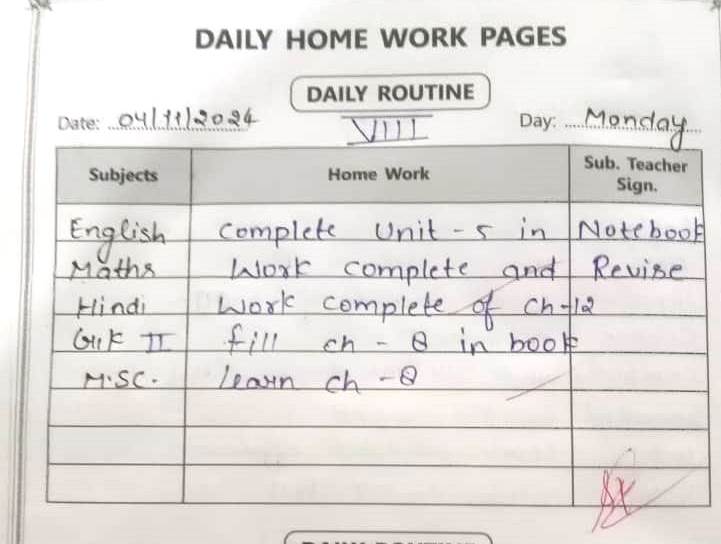 DAILY HOME WORK PAGES
DAILY ROUTINE
Date: 04/11/2024 VIII Day: Monday
Subjects Home Work Sub. Teacher Sign.
English Complete Unit - 5 in Notebook
Maths Work complete and Revise
Hindi Work complete of ch-12
G.K II fill ch - 8 in book
M.SC. learn ch - 8